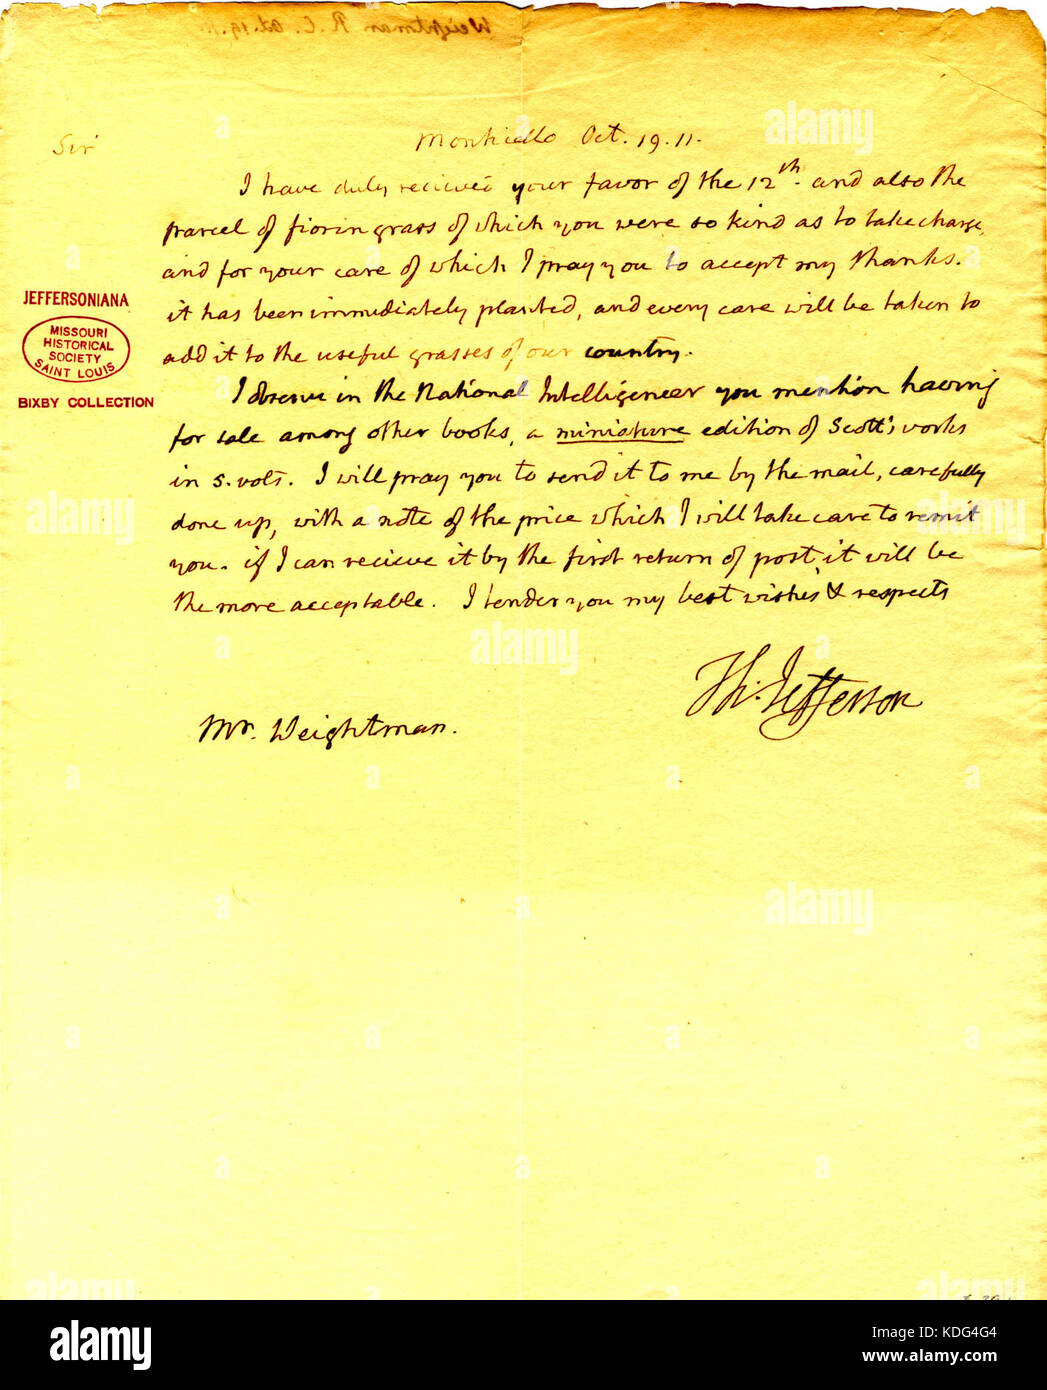 Weightman R. C. Oct. 19.
Sir
Monticello Oct. 19. 11.
I have duly recieved your favor of the 12th. and also the
parcel of fiorin grass of which you were so kind as to take charge,
and for your care of which I pray you to accept my thanks.
it has been immediately planted, and every care will be taken to
add it to the useful grasses of our country.
I observe in the National Intelligencer you mention having
for sale among other books, a miniature edition of Scott's works
in 5. vols. I will pray you to send it to me by the mail, carefully
done up, with a note of the price which I will take care to remit
you. if I can recieve it by the first return of post, it will be
the more acceptable. I tender you my best wishes & respects
Th: Jefferson
Mr. Weightman.
JEFFERSONIANA
MISSOURI
HISTORICAL
SOCIETY
SAINT LOUIS
BIXBY COLLECTION
alamy
alamy
alamy
alamy
alamy
alamy
alamy
alamy
Image ID: KDG4G4
www.alamy.com